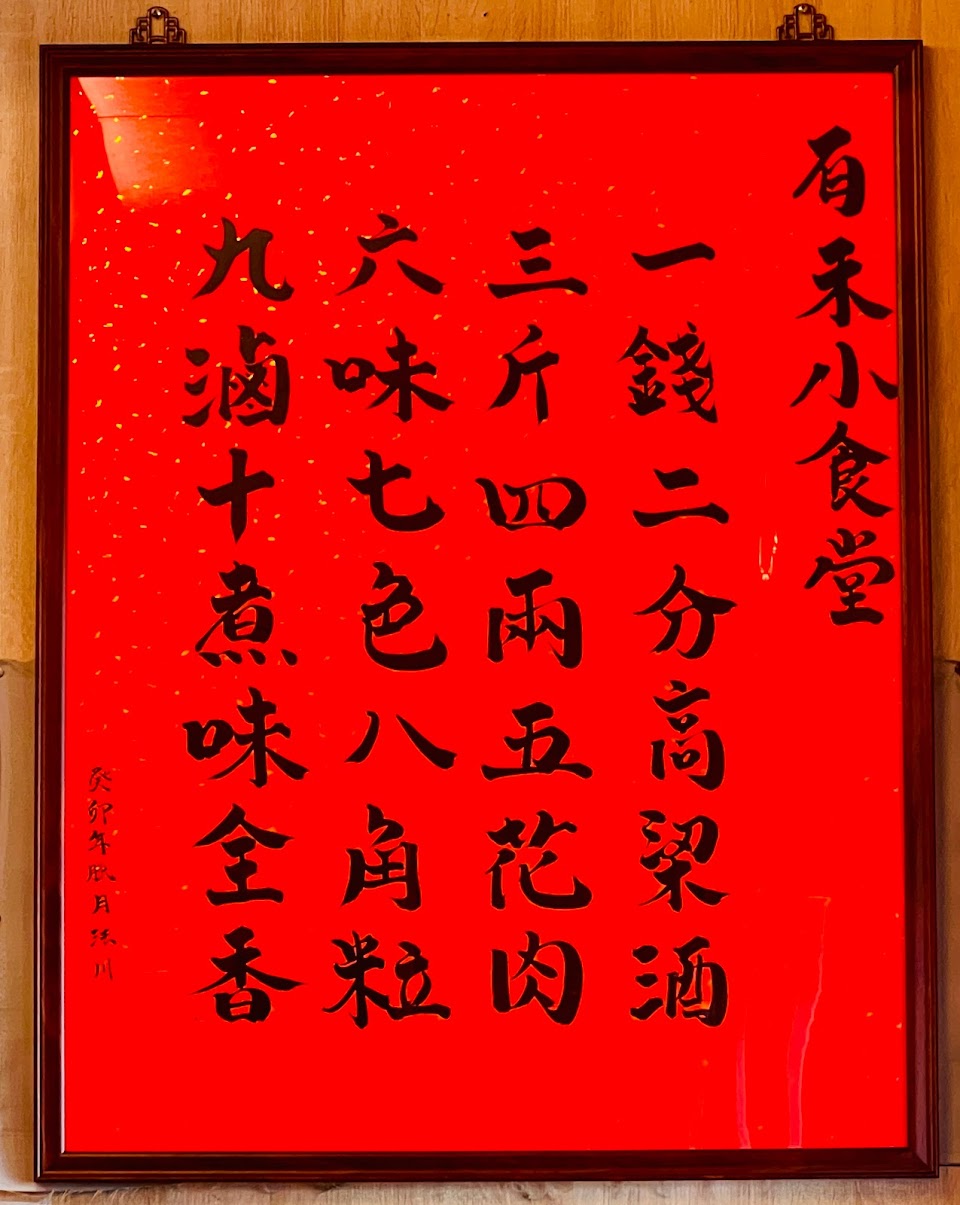 百禾小食堂
一錢二分高梁酒
三斤四兩五花肉
六味七色八角粒
九滷十煮味全香
癸卯年月川